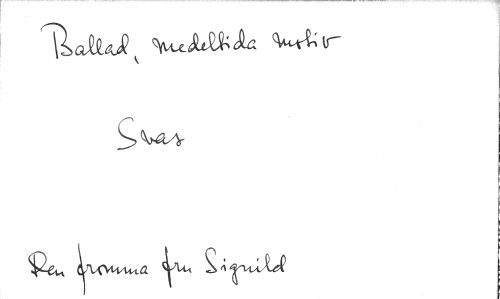 Ballad, medeltida motiv
Svar
Den fromma fru Signild